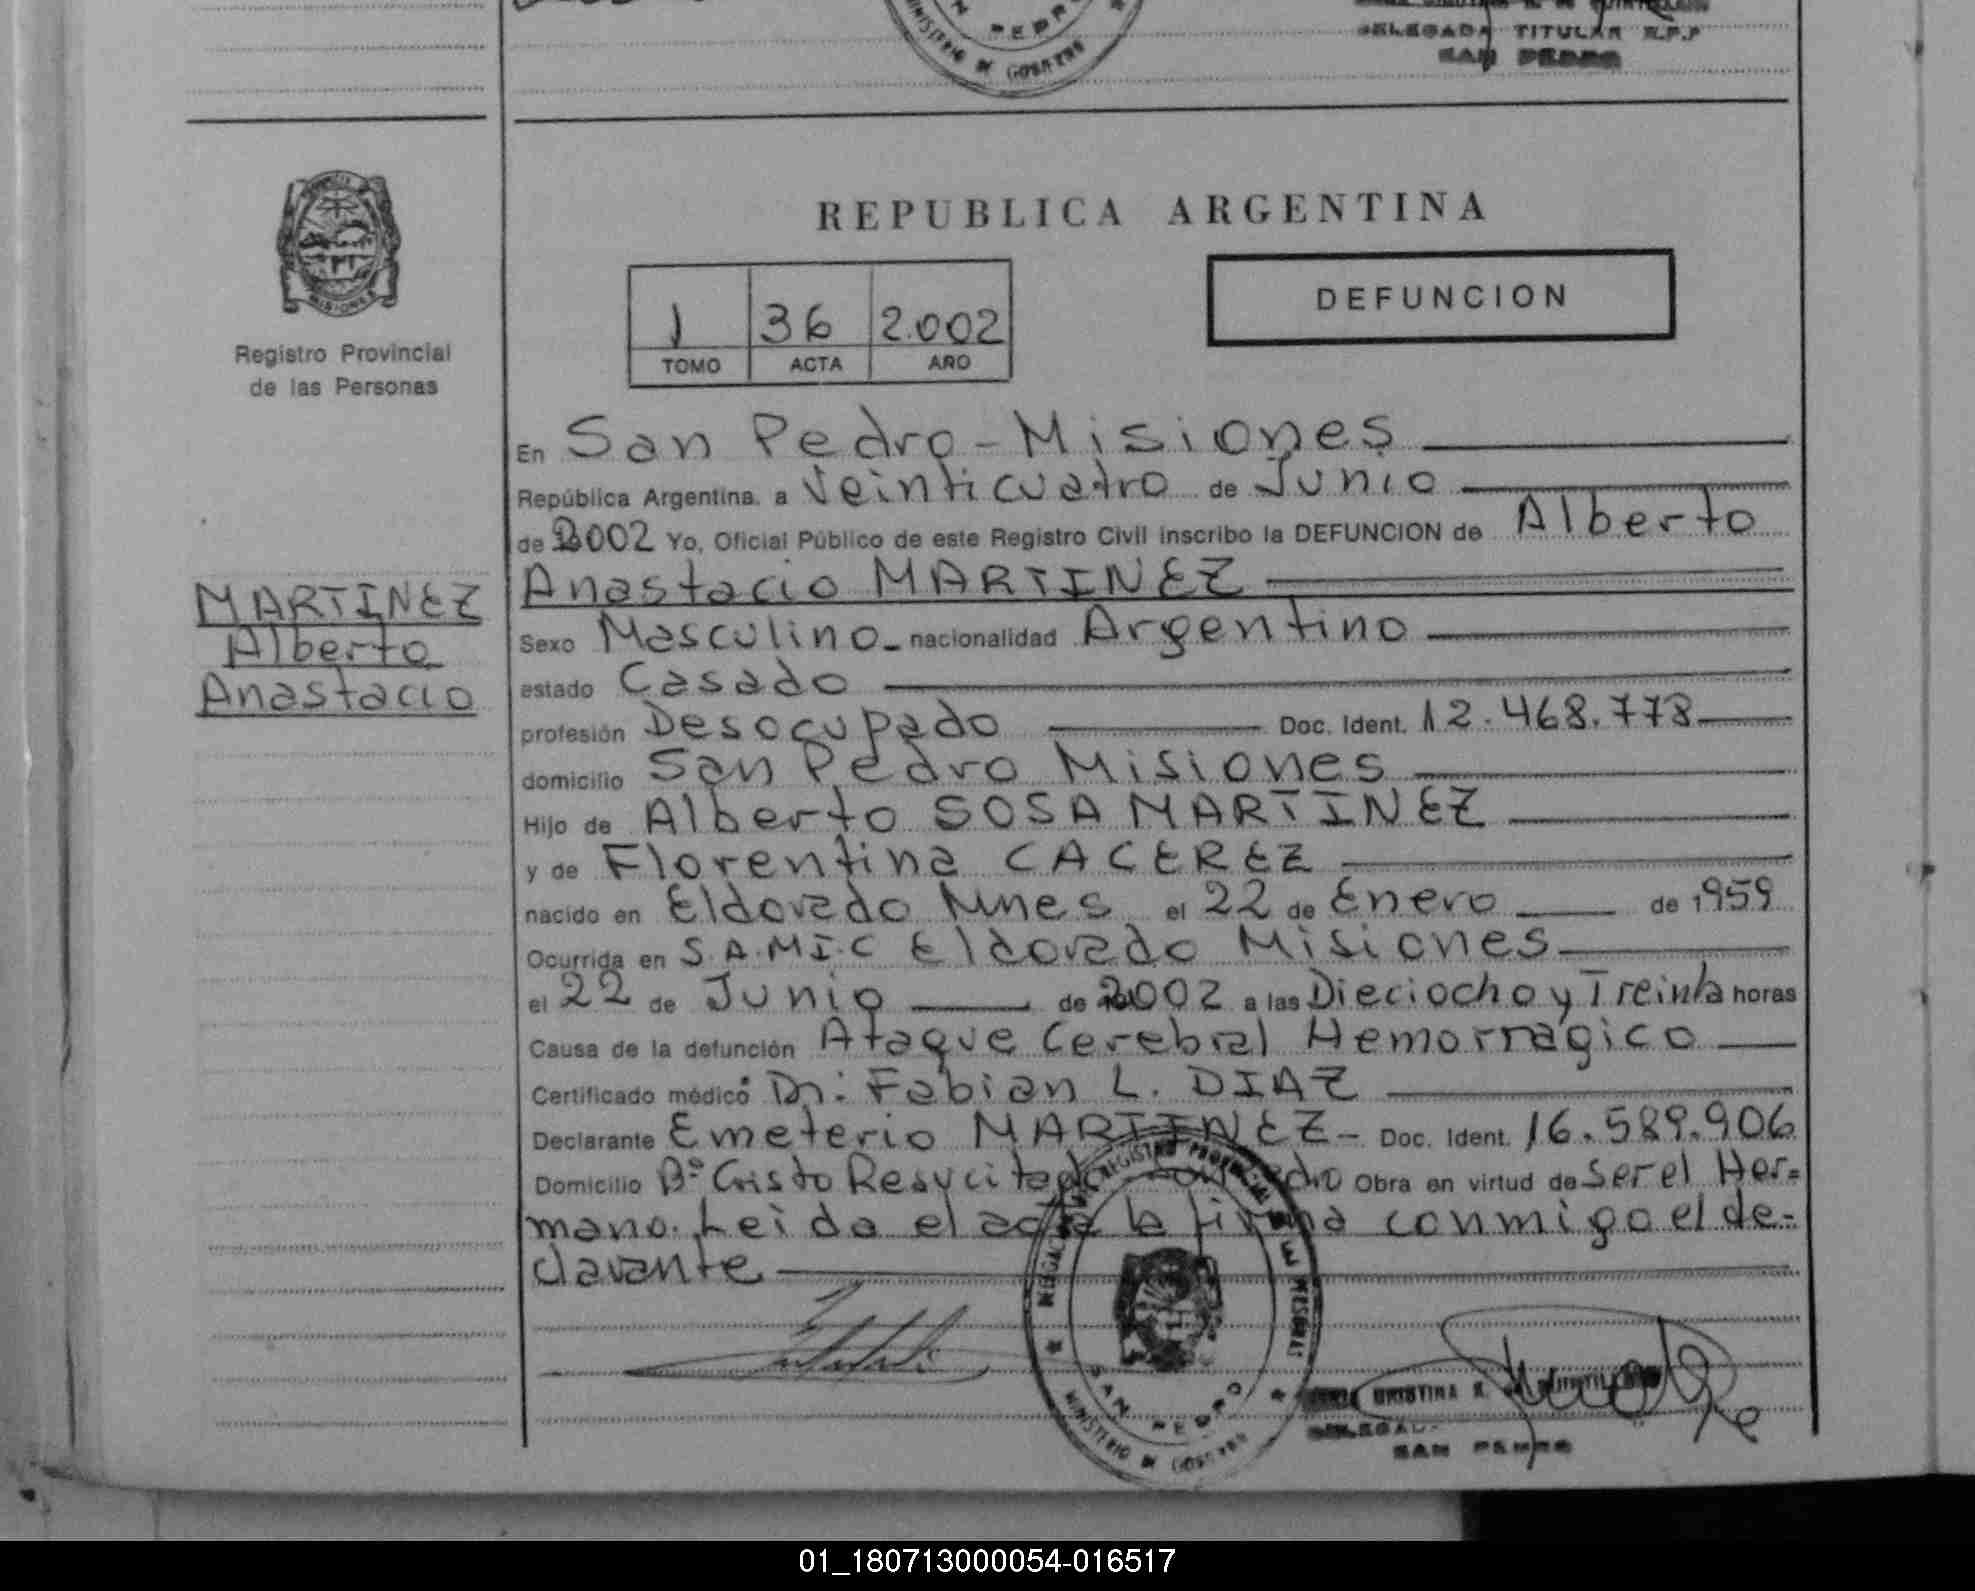 DELEGADA TITULAR R.P.P
SAN PEDRO
SAN PEDRO
MINISTERIO DE GOBIERNO
PROVINCIA DE
MISIONES
Registro Provincial
de las Personas
MARTINEZ
Alberto
Anastacio
REPUBLICA ARGENTINA
1 36 2.002
TOMO ACTA AÑO
DEFUNCION
En San Pedro - Misiones
República Argentina, a Veinticuatro de Junio
de 2002 Yo, Oficial Público de este Registro Civil inscribo la DEFUNCION de Alberto
Anastacio MARTINEZ
Sexo Masculino - nacionalidad Argentino
estado Casado
profesión Desocupado Doc. Ident. 12.468.778
domicilio San Pedro Misiones
Hijo de Alberto SOSA MARTINEZ
y de Florentina CACEREZ
nacido en Eldorado Mnes el 22 de Enero de 1959
Ocurrida en S.A.M.I.C Eldorado Misiones
el 22 de Junio de 2002 a las Dieciocho y Treinta horas
Causa de la defunción Ataque Cerebral Hemorrágico
Certificado médico: Dr: Fabian L. DIAZ
Declarante Emeterio MARTINEZ - Doc. Ident. 16.589.906
Domicilio Bº Cristo Resucitado San Pedro Obra en virtud de ser el Her=
mano. Leida el acta la firma conmigo el de-
clarante
DELEGACION REGISTRO PROVINCIAL DE LAS PERSONAS
SAN PEDRO
MINISTERIO DE GOBIERNO
CRISTINA R. DE
SAN PEDRO
01_180713000054-016517